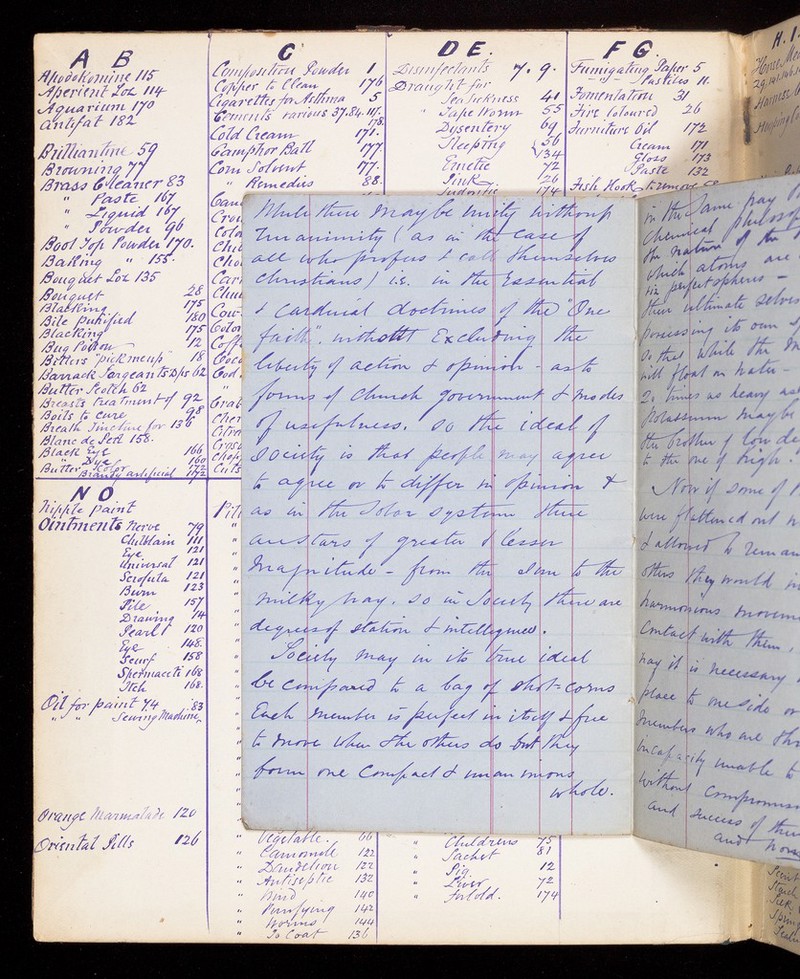 A B
Apodokomine 115
Aperient Loz 114
Aquarium 170
Antifat 182
Brilliantine 59
Browning 77
Brass Cleaner 83
" Paste 167
" Liquid 167
" Powder 96
Boot Top Powder 170.
Baking " 155.
Bouquet Loz 135
Bouquet 28
Blacking 175
Bile purified 180
Blacking 175
Bug Poison 12
Bitters "pick me up" 18
Barrack Sargeants Dps 62
Butter Scotch 62
Breasts treatment of 92
Boils to cure 98
Breath Tincture for 136
Blanc de Perl 158.
Black Eye 166
" Dye 160
Butter Color 172
Brandy artificial 172
C
Composition Powder 1
Copper to Clean 176
Cigarettes for Asthma 5
Cements various 37.84.117.
178.
Cold Cream 171.
Camphor Ball 177.
Corn Solvent 177.
" Remedies 88.
D E.
Disinfectants 7. 9.
Draught for
Sea Sickness 41
" Tape Worm 55
Dysentery 69
Sleeping 56
134
Emetic 72
Pink 126
174
F G.
Fumigating Paper 5
" Pastiles 11.
Fomentation 31
Fire Coloured 26
Furniture Oil 172
Cream 171
Gloss 173
Paste 132
Fish Hook to remove
H. I.
N O
Nipple paint
Ointments Nerve 79
Chilblain 111
Eye. 121
Universal 121
Scrofula 121
Burn 123
Pile 157
Drawing 74
Pearl 120
Eye 148.
Scurf 158
Spermaceti 168
Itch 168.
Oil for paint 74. 83
" " Sewing Machine
Orange Marmalade 120
Oriental Pills 126
While there may be unity without
Unanimity (as in the case of
all who profess & call themselves
Christians) i.e. in the Essential
& Cardinal doctrines of the "One
faith". without Excluding the
liberty of action & opinion - as to
forms of Church government & modes
of usefulness. so the ideal of
Society is that people may agree
to agree or to differ in opinion &
as in the Solar system there
are stars of greater & lesser
Magnitude - from the Sun to the
milky way. so in Society there are
degrees of station & intelligence.
Society may in its true ideal
be compared to a bag of shot-corns
Each member is perfect in itself & free
to move when the others do but they
form one compact & unanimous
whole.
in the same way
Chemical philosoph
the nature of the
which atoms are
in perfect spheres -
their ultimate selves
possessing its own
so that while the
will float on water -
2 times as heavy
potassium may be
the brother of low de
to the one of high.
Now if some of
were flattened out
& allowed to remain
others they would in
harmonious movem
Contact with them,
way it is necessary
place to one side or
members who are
incapacity unable to
without compromis
and success of their
and
" Vegetable. 66
" Camomile 122
" Dandelion 122
" Antiseptic 132
" Wind 140
" Purifying 142
" Worms 144
" To Coat 136
" Childrens 75
" Sachet 81
" Pig. 12
" Liver 72
" For Cold. 174